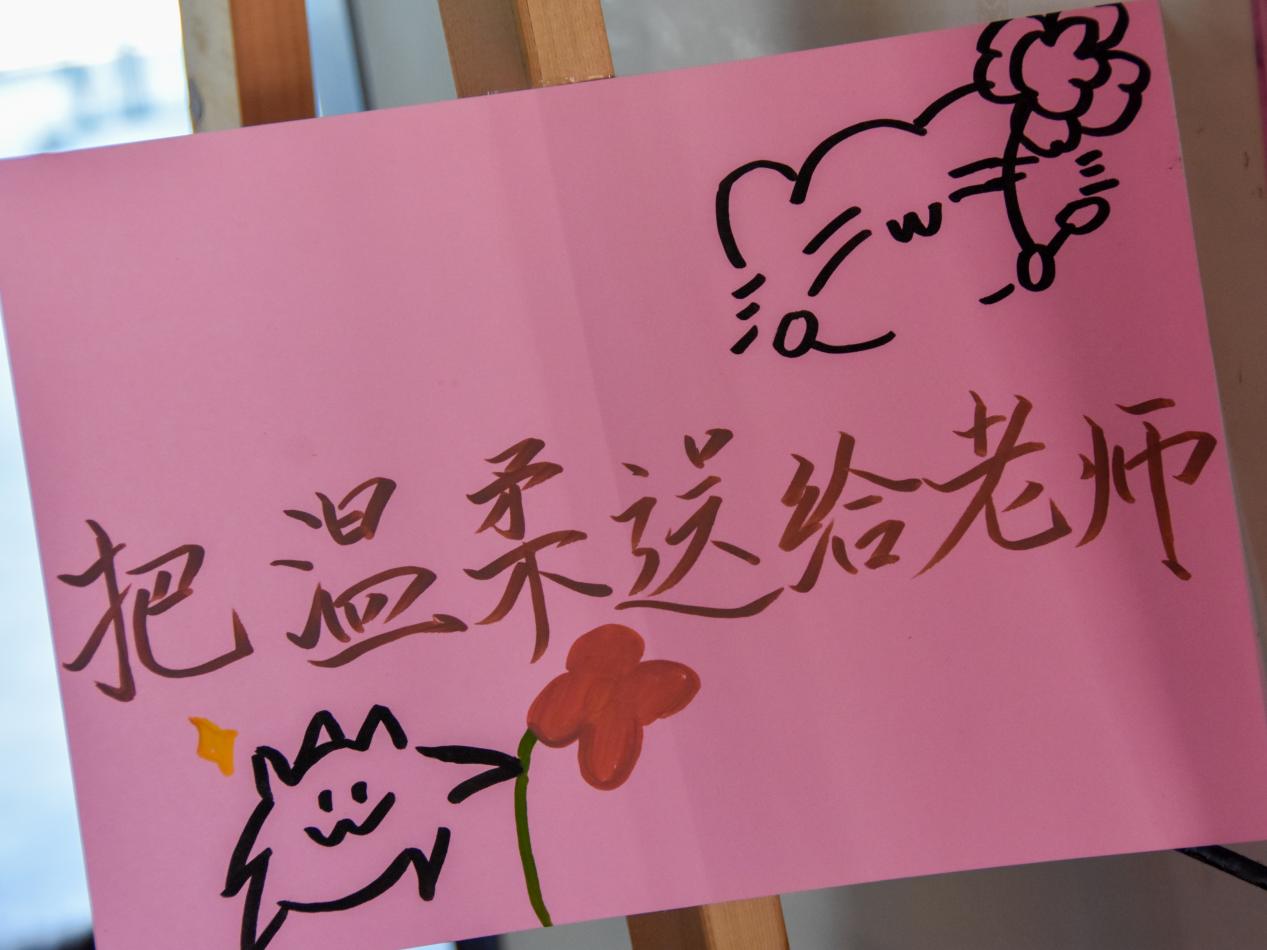 把温柔送给老师